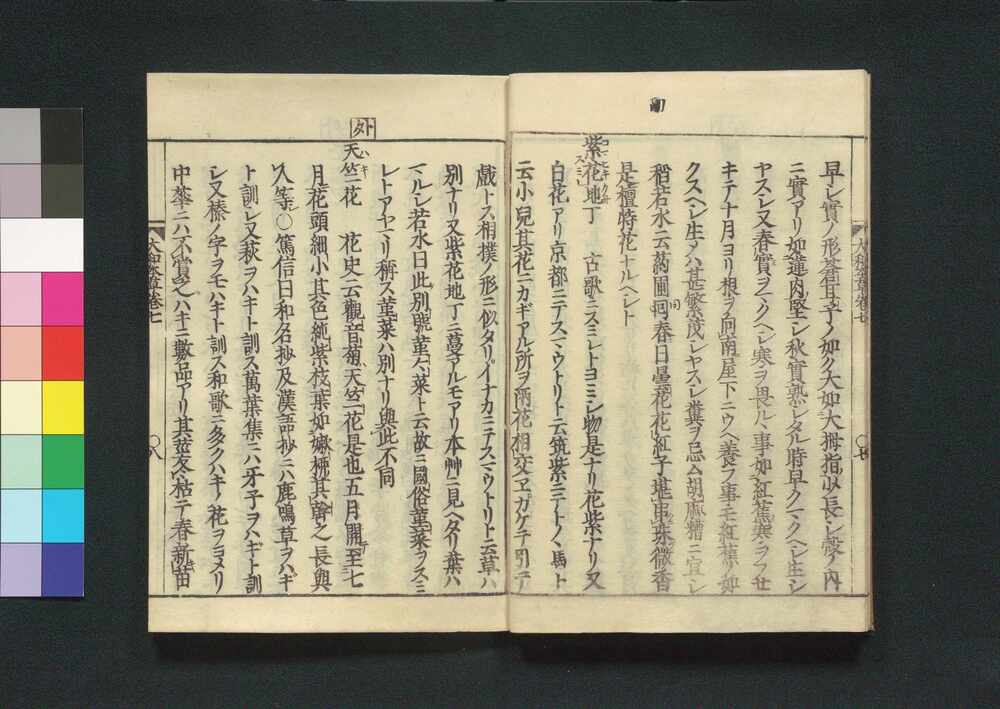 早シ實ノ形蒼耳子ノ如ク大如大拇指少長シ殻ノ内
ニ實アリ如蓮肉堅シ秋實熟シタル時早クマクヘシ生シ
ヤスシ又春實ヲマクヘシ寒ヲ畏ルヽ事如紅蕉寒ヲフセ
キテ十月ヨリ根ヲ向南屋下ニウヘ養フ事モ紅蕉ノ如
クスヘシ生ノハ甚繁茂シヤスシ糞ヲ忌ム胡麻糟ニ宜シ
稻若水云藥圃同春日曇花花紅子堪串珠微香
是檀特花ナルヘシト
紫花地丁 古歌ニスミレトヨミシ物是ナリ花紫ナリ又
白花アリ京都ニテスマウトリト云筑紫ニテトノヽ馬ト
云小兒其花ニカギアル所ヲ兩花相交ヱガケテ引テ
戲トス相撲ノ形ニ似タリイナカニテスマウトリト云草ハ
別ナリ又紫花地丁ニ蔓アルモアリ本艸ニ見ヘタリ葉ハ
マルシ若水曰此別號菫々菜ト云故ニ國俗菫菜ヲスミ
レトアヤマリ稱ス菫菜ハ別ナリ與此不同
外
天竺花 花史云觀音菊天竺花是也五月開至七
月花頭細小其色純紫枝葉如嫩柳其幹之長與
人等○篤信曰和名抄及漢語抄ニハ鹿鳴草ヲハギ
ト訓シ又萩ヲハキト訓ス萬葉集ニハ牙子ヲハギト訓
シ又榛ノ字ヲモハキト訓ス和歌ニ多クハギノ花ヲヨメリ
中華ニハ不賞之ハキニ數品アリ其莖冬枯テ春新苗
大和本草卷七
○八